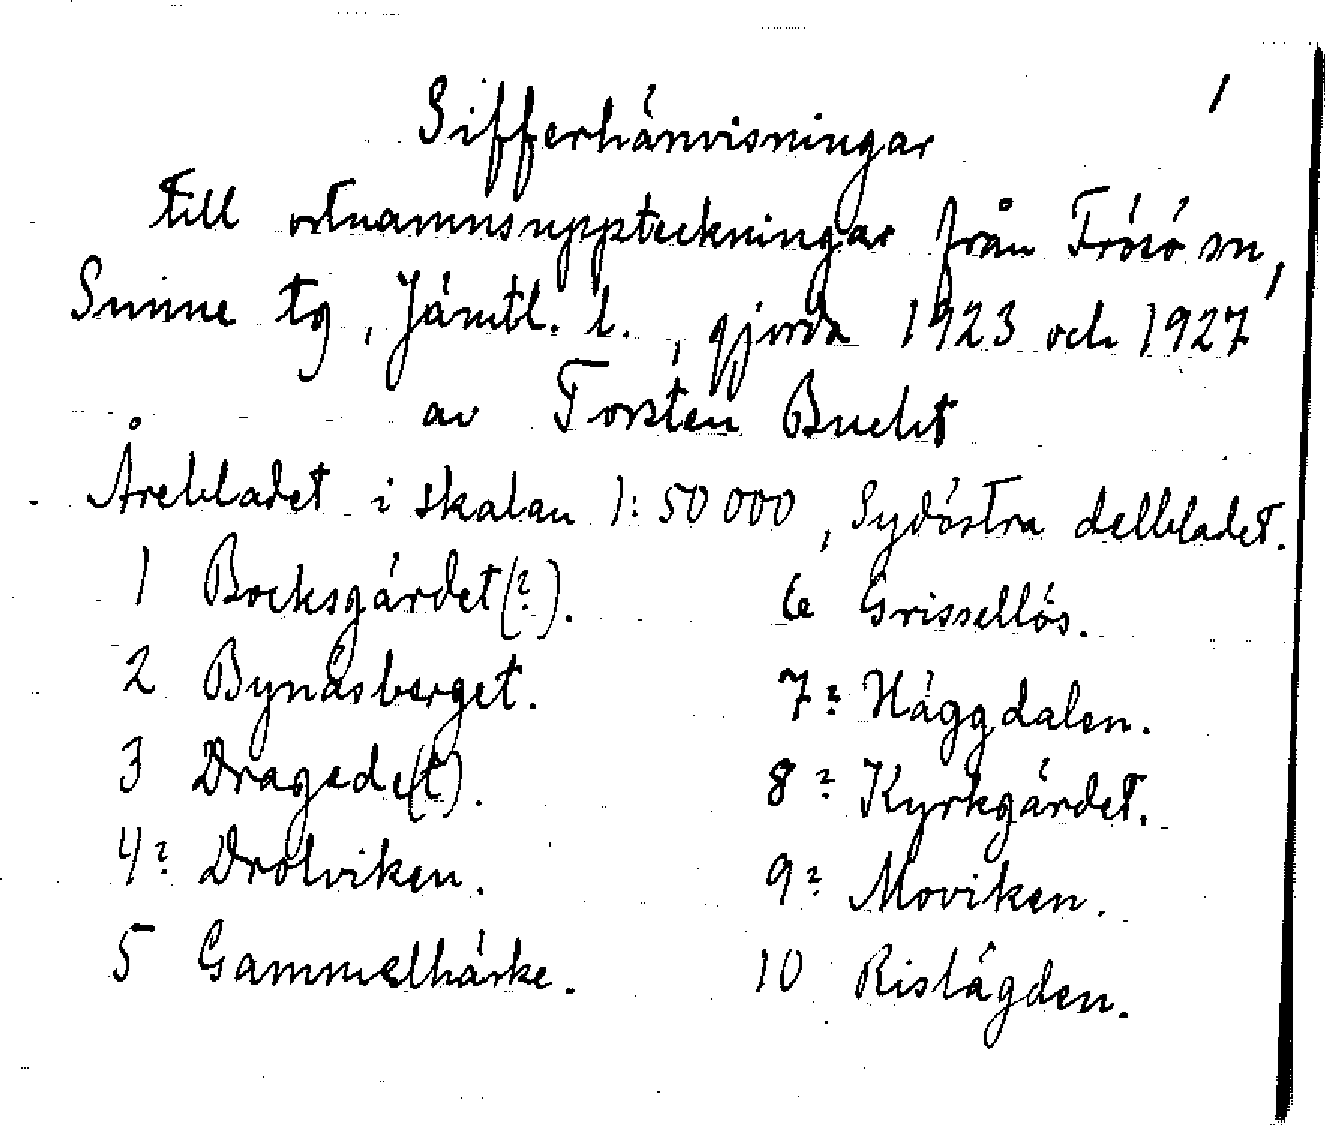 1
Sifferhänvisningar
till ortnamnsuppteckningar från Frösö sn,
Sunne tg, Jämtl. l., gjorda 1923 och 1927
av Torsten Bucht
Årebladet i skalan 1:50 000, Sydöstra delbladet.
1 Bocksgärdet(?).
2 Bynäsberget.
3 Dragede(t).
4? Drolviken.
5 Gammelhärke.
6 Grissellös.
7? Häggdalen.
8? Kyrkgärdet.
9? Moviken.
10 Rislägden.